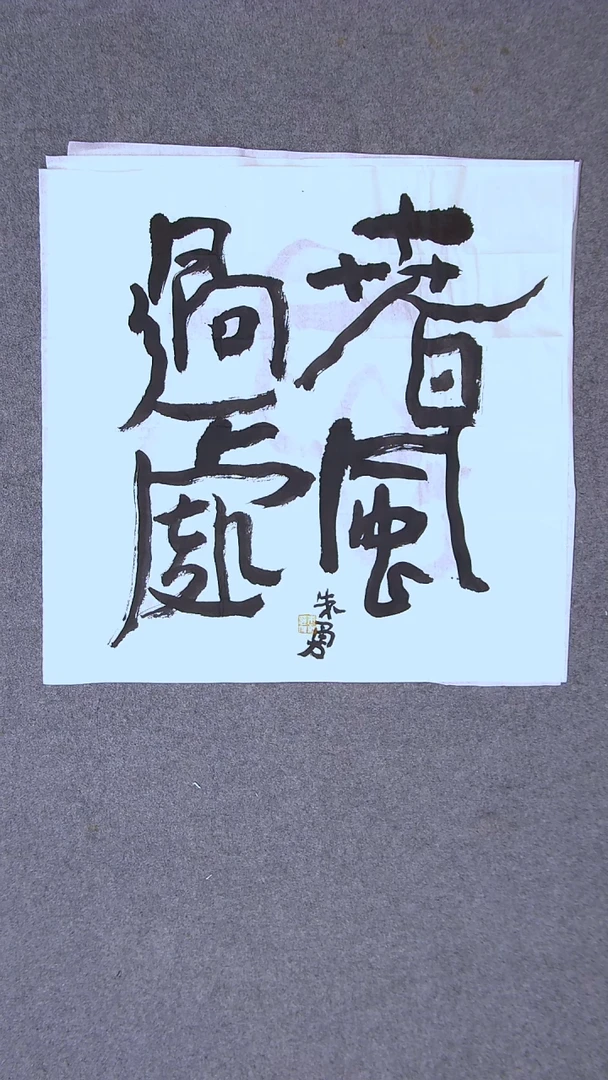 春風
過處
朱勇